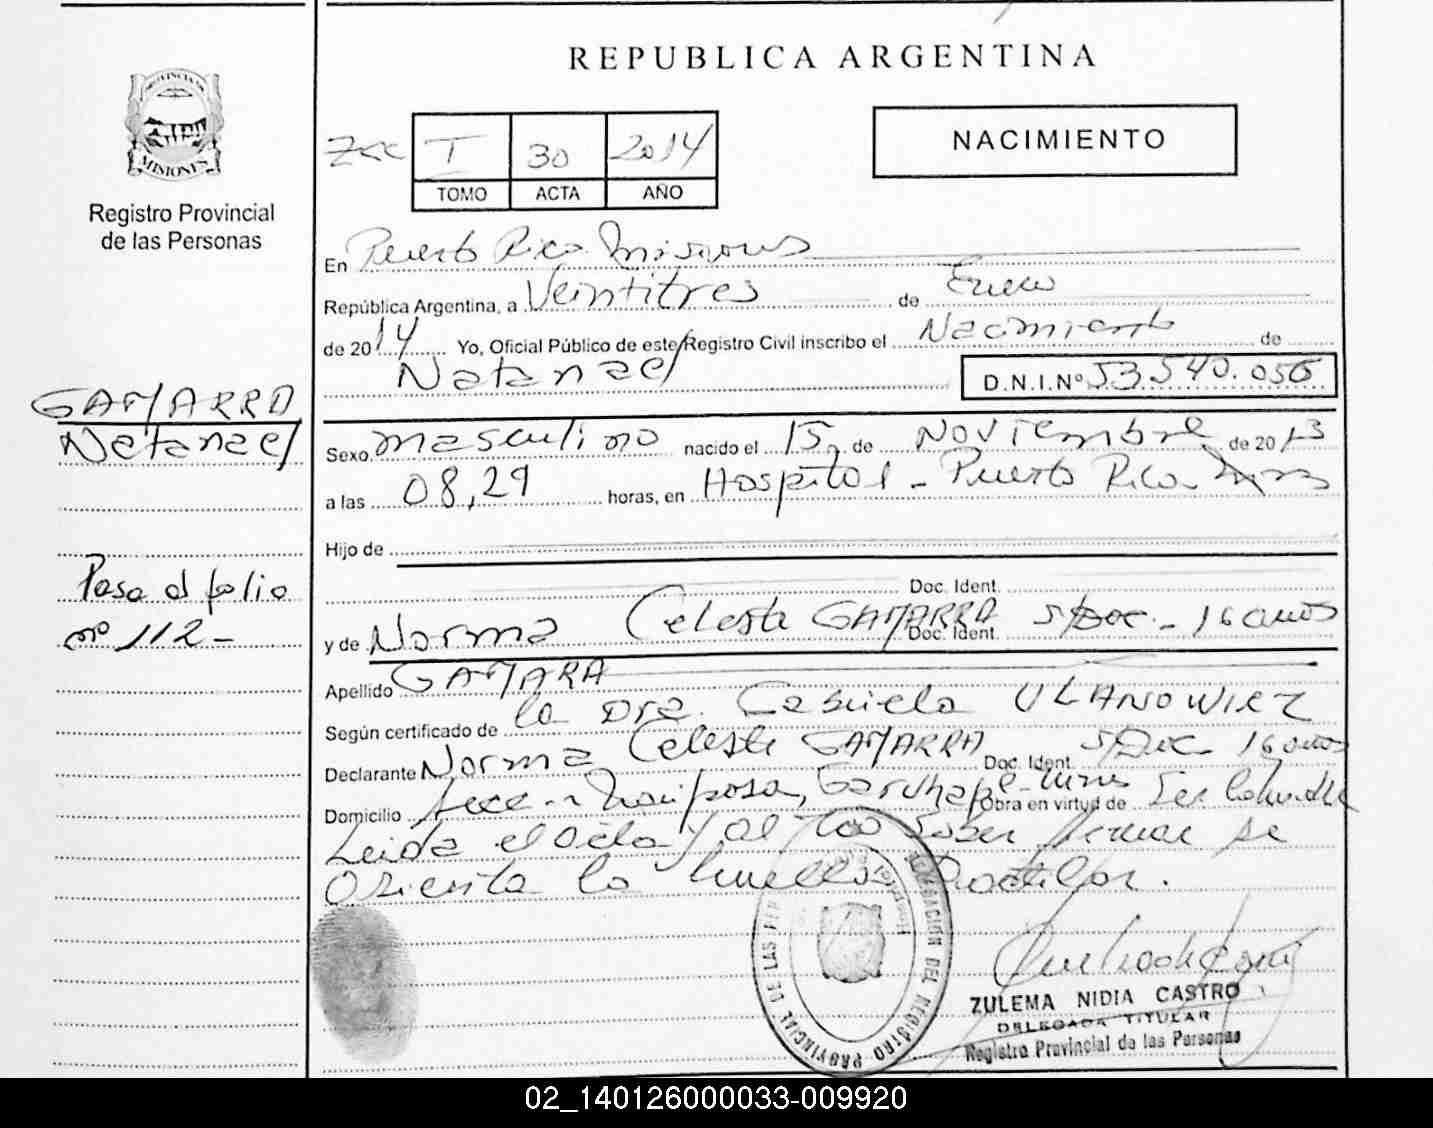 REPUBLICA ARGENTINA
NACIMIENTO
PROVINCIA DE
MISIONES
Registro Provincial
de las Personas
I 30 2014
TOMO ACTA AÑO
En Puerto Rico Misiones
República Argentina, a Veintitres de Enero
de 2014 Yo, Oficial Público de este Registro Civil inscribo el Nacimiento de
Natanael D.N.I.Nº 53.540.056
GAMARRA
Natanael
Sexo masculino nacido el 15 de Noviembre de 2013
a las 08,29 horas, en Hospital - Puerto Rico - Mnes
Hijo de
Doc. Ident.
Pasa al folio
nº 112-
y de Norma Celeste GAMARRA Doc. Ident. s/Doc - 16 años
Apellido GAMARA
Según certificado de la Dra. Casuela ULANOWICZ
Declarante Norma Celeste GAMARRA Doc. Ident. s/Doc - 16 años
Domicilio Mariposa, Garuhapé - Mnes Obra en virtud de
Leida el Acta y al no saber firmar se
la huella Dactilar.
DELEGACION DEL REGISTRO PROVINCIAL DE LAS PER
ZULEMA NIDIA CASTRO
DELEGADA TITULAR
Registro Provincial de las Personas
02_140126000033-009920